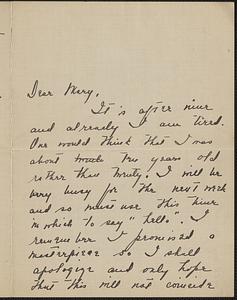 Dear Mary,
It is after nine
and already I am tired.
One would think that I was
about two years old
rather than twenty. I will be
very busy for the next week
and so must use this time
in which to say "hello". I
remember I promised a
masterpiece so I shall
apologize and only hope
that this will not coincide